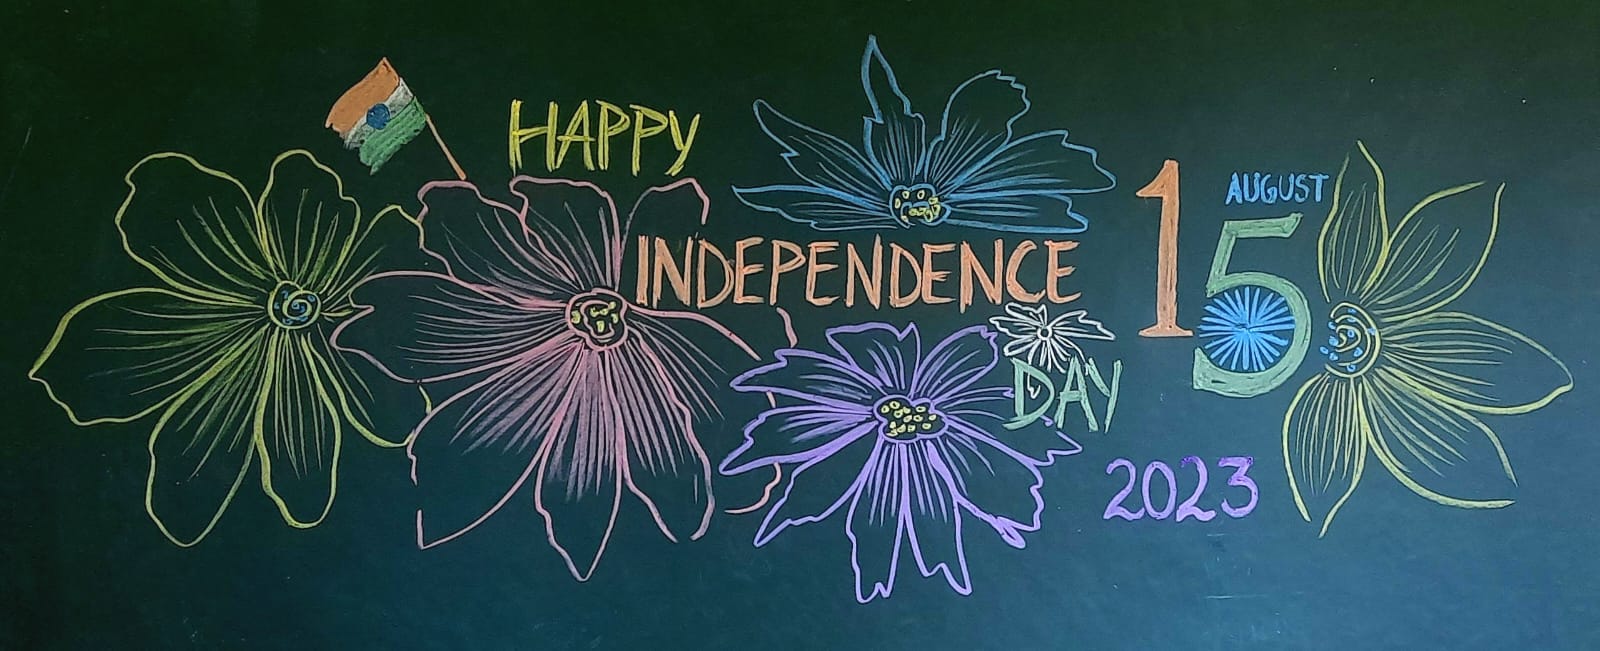 HAPPY
INDEPENDENCE
DAY
15
AUGUST
2023